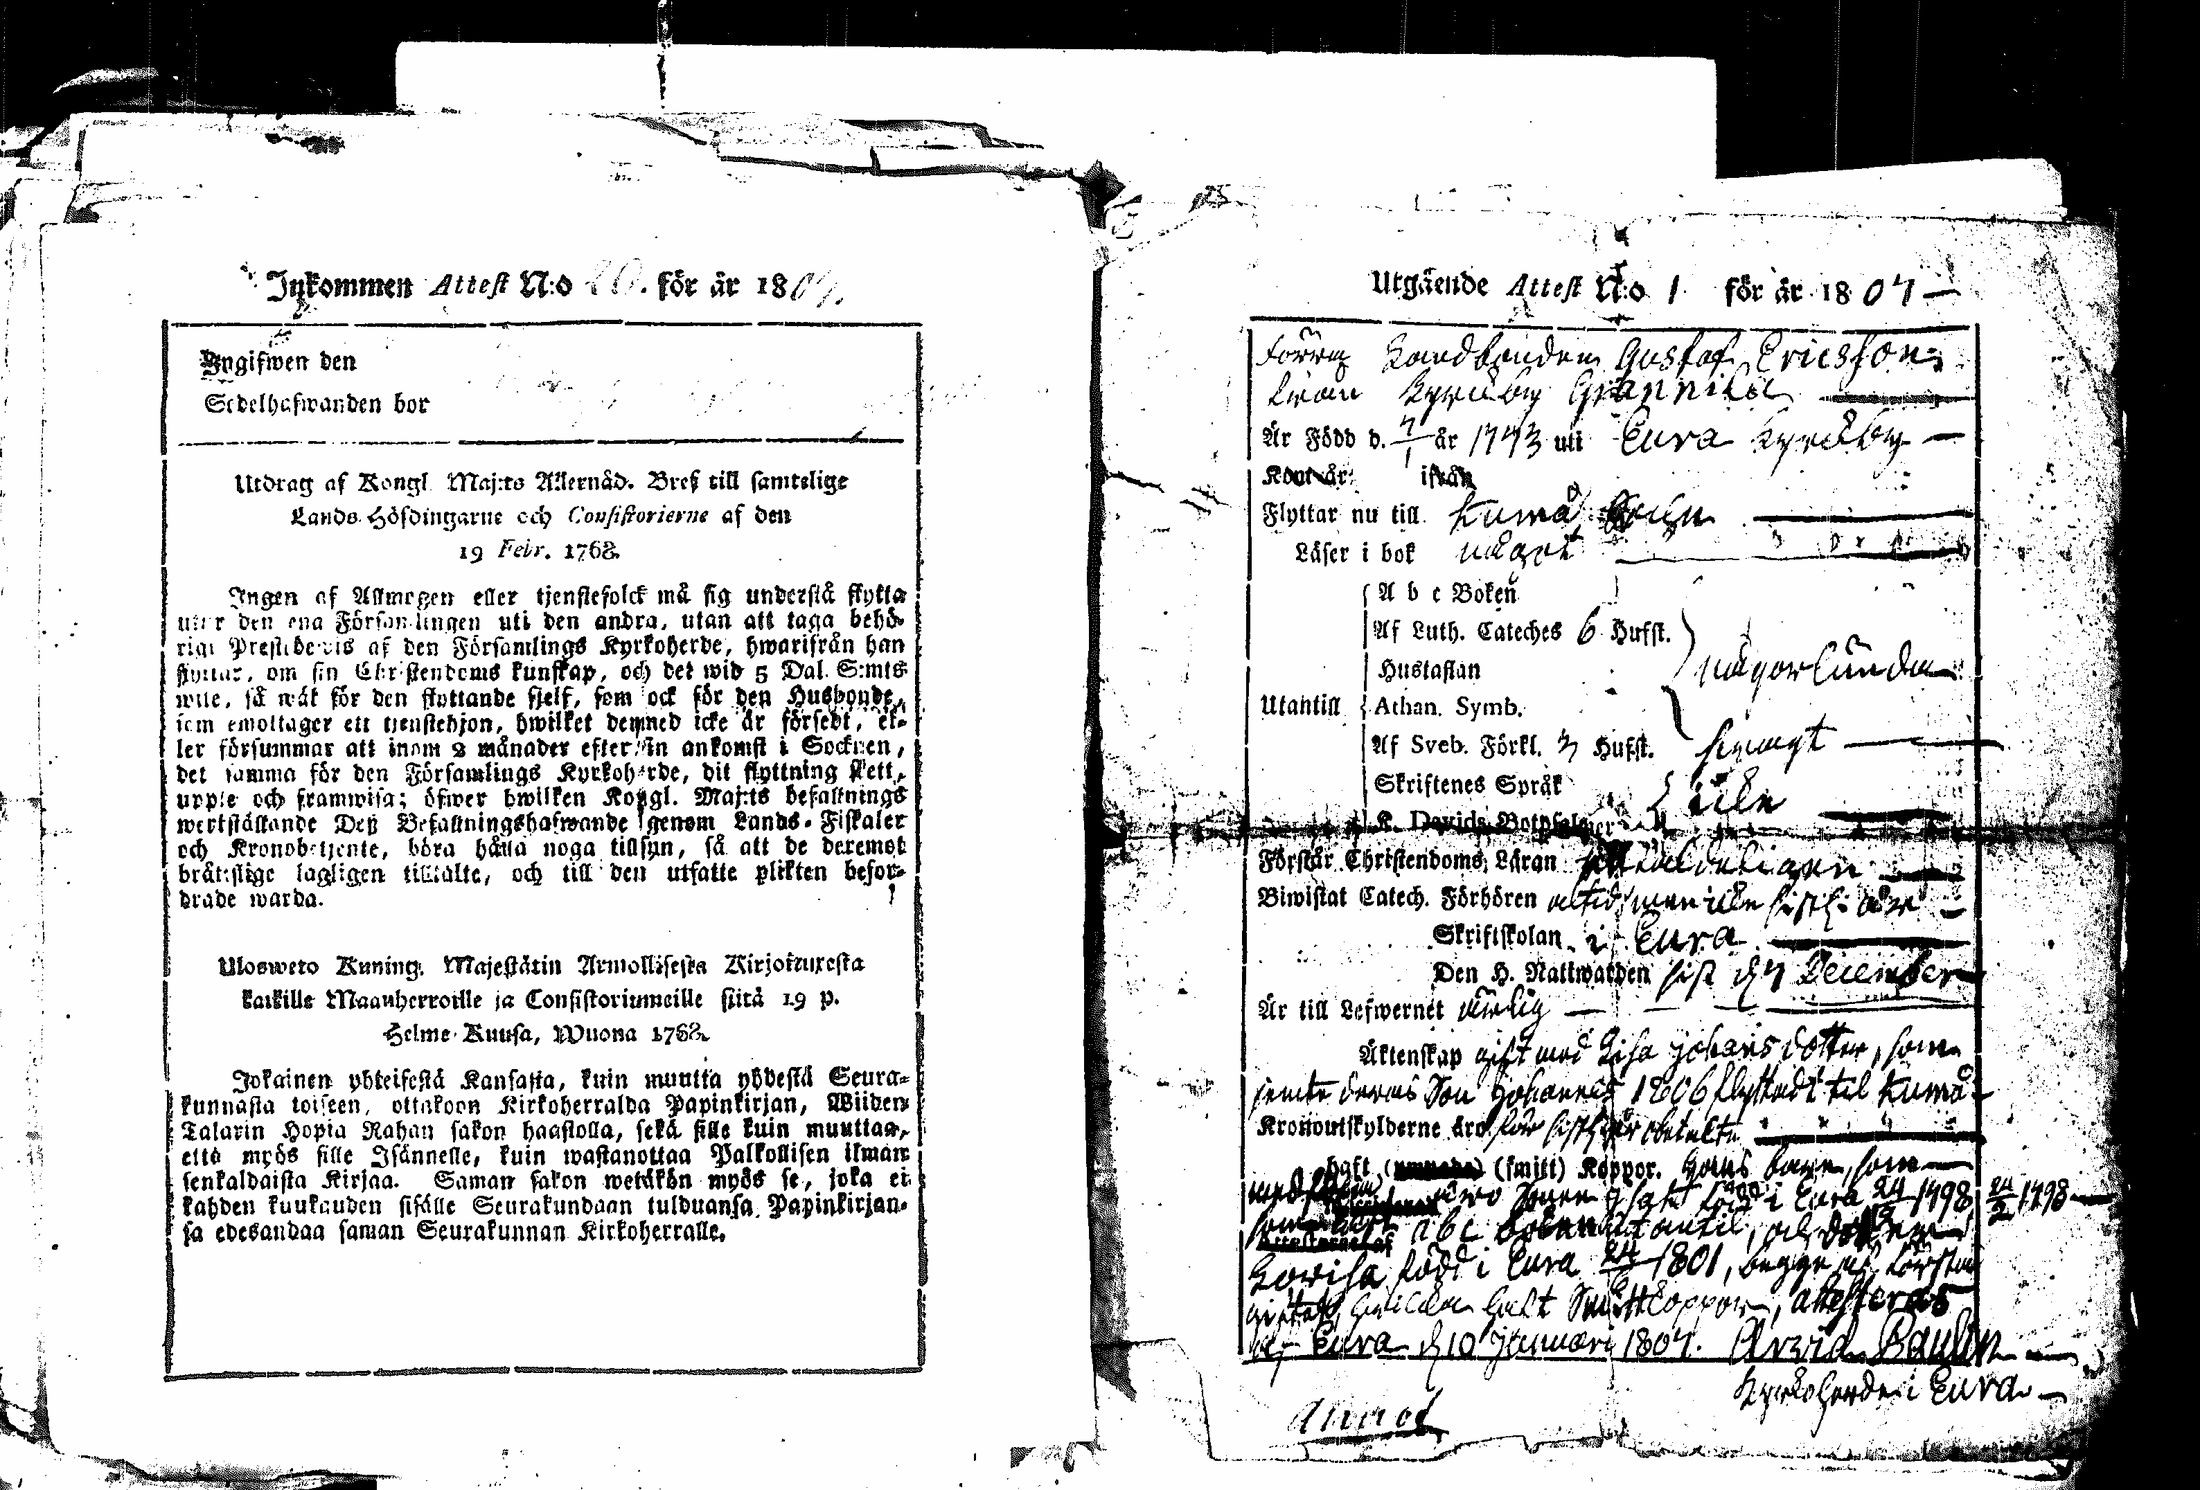 Inkommen Attest N:o 20. för år 1807.
Ingifwen den
Sedelhafwanden bor
Utdrag af Kongl. Maj:ts Allernåd. Bref till samtelige
Lands-Höfdingarne och Consistorierne af den
19 Febr. 1768.
Ingen af Allmogen eller tjenstefolck må sig understå flytta
utur den ena Församlingen uti den andra, utan att taga behö-
rigt Prestebewis af den Församlings Kyrkoherde, hwarifrån han
flyttar, om sin Christendoms kunskap, och det wid 5 Dal. S:mts
wite, så wäl för den flyttande sjelf, som ock för den Husbonde,
som emottager ett tjenstehjon, hwilket dermed icke är försedt, el-
ler försummar att inom 2 månader efter sin ankomst i Socknen,
det samma för den Församlings Kyrkoherde, dit flyttning skett,
uppte och framwisa; öfwer hwilken Kongl. Maj:ts befallnings
werkställande Deß Befallningshafwande genom Lands-Fiskaler
och Kronobetjente, böra hålla noga tillsyn, så att de deremot
brätslige lagligen tilltalte, och till den utsatte plikten befor-
drade warda.
Ulosweto Kuning. Majestätin Armollisesta Kirjoituxesta
kaikille Maanherroille ja Consistoriumeille siitä 19 p.
Helme-Kuusa, Wuona 1768.
Jokainen yhteisestä Kansasta, kuin muutta yhdestä Seura-
kunnasta toiseen, ottakoon Kirkoherralda Papinkirjan, Wiiden
Talarin Hopia Rahan sakon haastolla, sekä sille kuin muuttaa,
että myös sille Isännelle, kuin wastanottaa Palkollisen ilman
senkaldaista Kirjaa. Saman sakon wetäkön myös se, joka ei
kahden kuukauden sisälle Seurakundaan tulduansa Papinkirjan-
sa edesandaa saman Seurakunnan Kirkoherralle.
Utgående Attest N:o 1 för år 1807
Förra Landbonden Gustaf Ericsson
ifrån Kyrckby Grannila
Är Född d. 7/1 år 1773 uti Eura Kyrckby
Kom år ifrån
Flyttar nu till Kumå Sokn
Läser i bok något
A b c Boken
Af Luth. Cateches 6 Hufst.
Hustaflan någorlunda
Utantill Athan. Symb.
Af Sveb. Förkl. 7 Hufst. swagt
Skriftenes Språk
K. Davids Botpsalmer icke
Förstår Christendoms Läran
Biwistat Catech. Förhören altid, men icke sistl. året
Skriftskolan i Eura
Den H. Nattwarden sist d. 7 December
Är till Lefwernet ärlig
Äktenskap gift med Lisa Johans dotter, som
jemte deras Son Johannes 1806 flyttadt til Kumå
Kronoutskylderne äro för sistl. år betalte
haft (smitt) Koppor. Hans barn, som
född i Eura 24/2 1798 24/2 1798
som abc boken utantil, och dottren
Lovisa född i Eura 1801, begge
hafwa haft Smittkoppor, attesteras
af Eura d. 10 Januari 1807. Arvid Paulin
Kyrkoherde i Eura
Annot